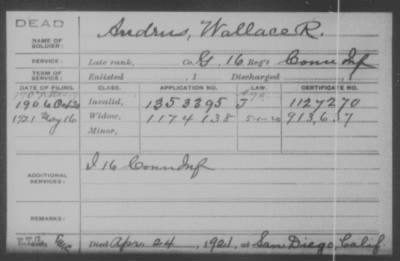 DEAD
NAME OF SOLDIER: Andrus, Wallace R.
SERVICE: Late rank, Co. G, 16 Reg't Conn Inf
TERM OF SERVICE: Enlisted , 1 Discharged , 1
DATE OF FILING. CLASS. APPLICATION NO. LAW. CERTIFICATE NO.
1906 Oct 20 Invalid, 1353395 1127270
1921 May 16 Widow, 1174138 5-1-20
Minor,
ADDITIONAL SERVICES: I 16 Conn Inf
REMARKS:
Died Apr. 24, 1921, at San Diego, Calif